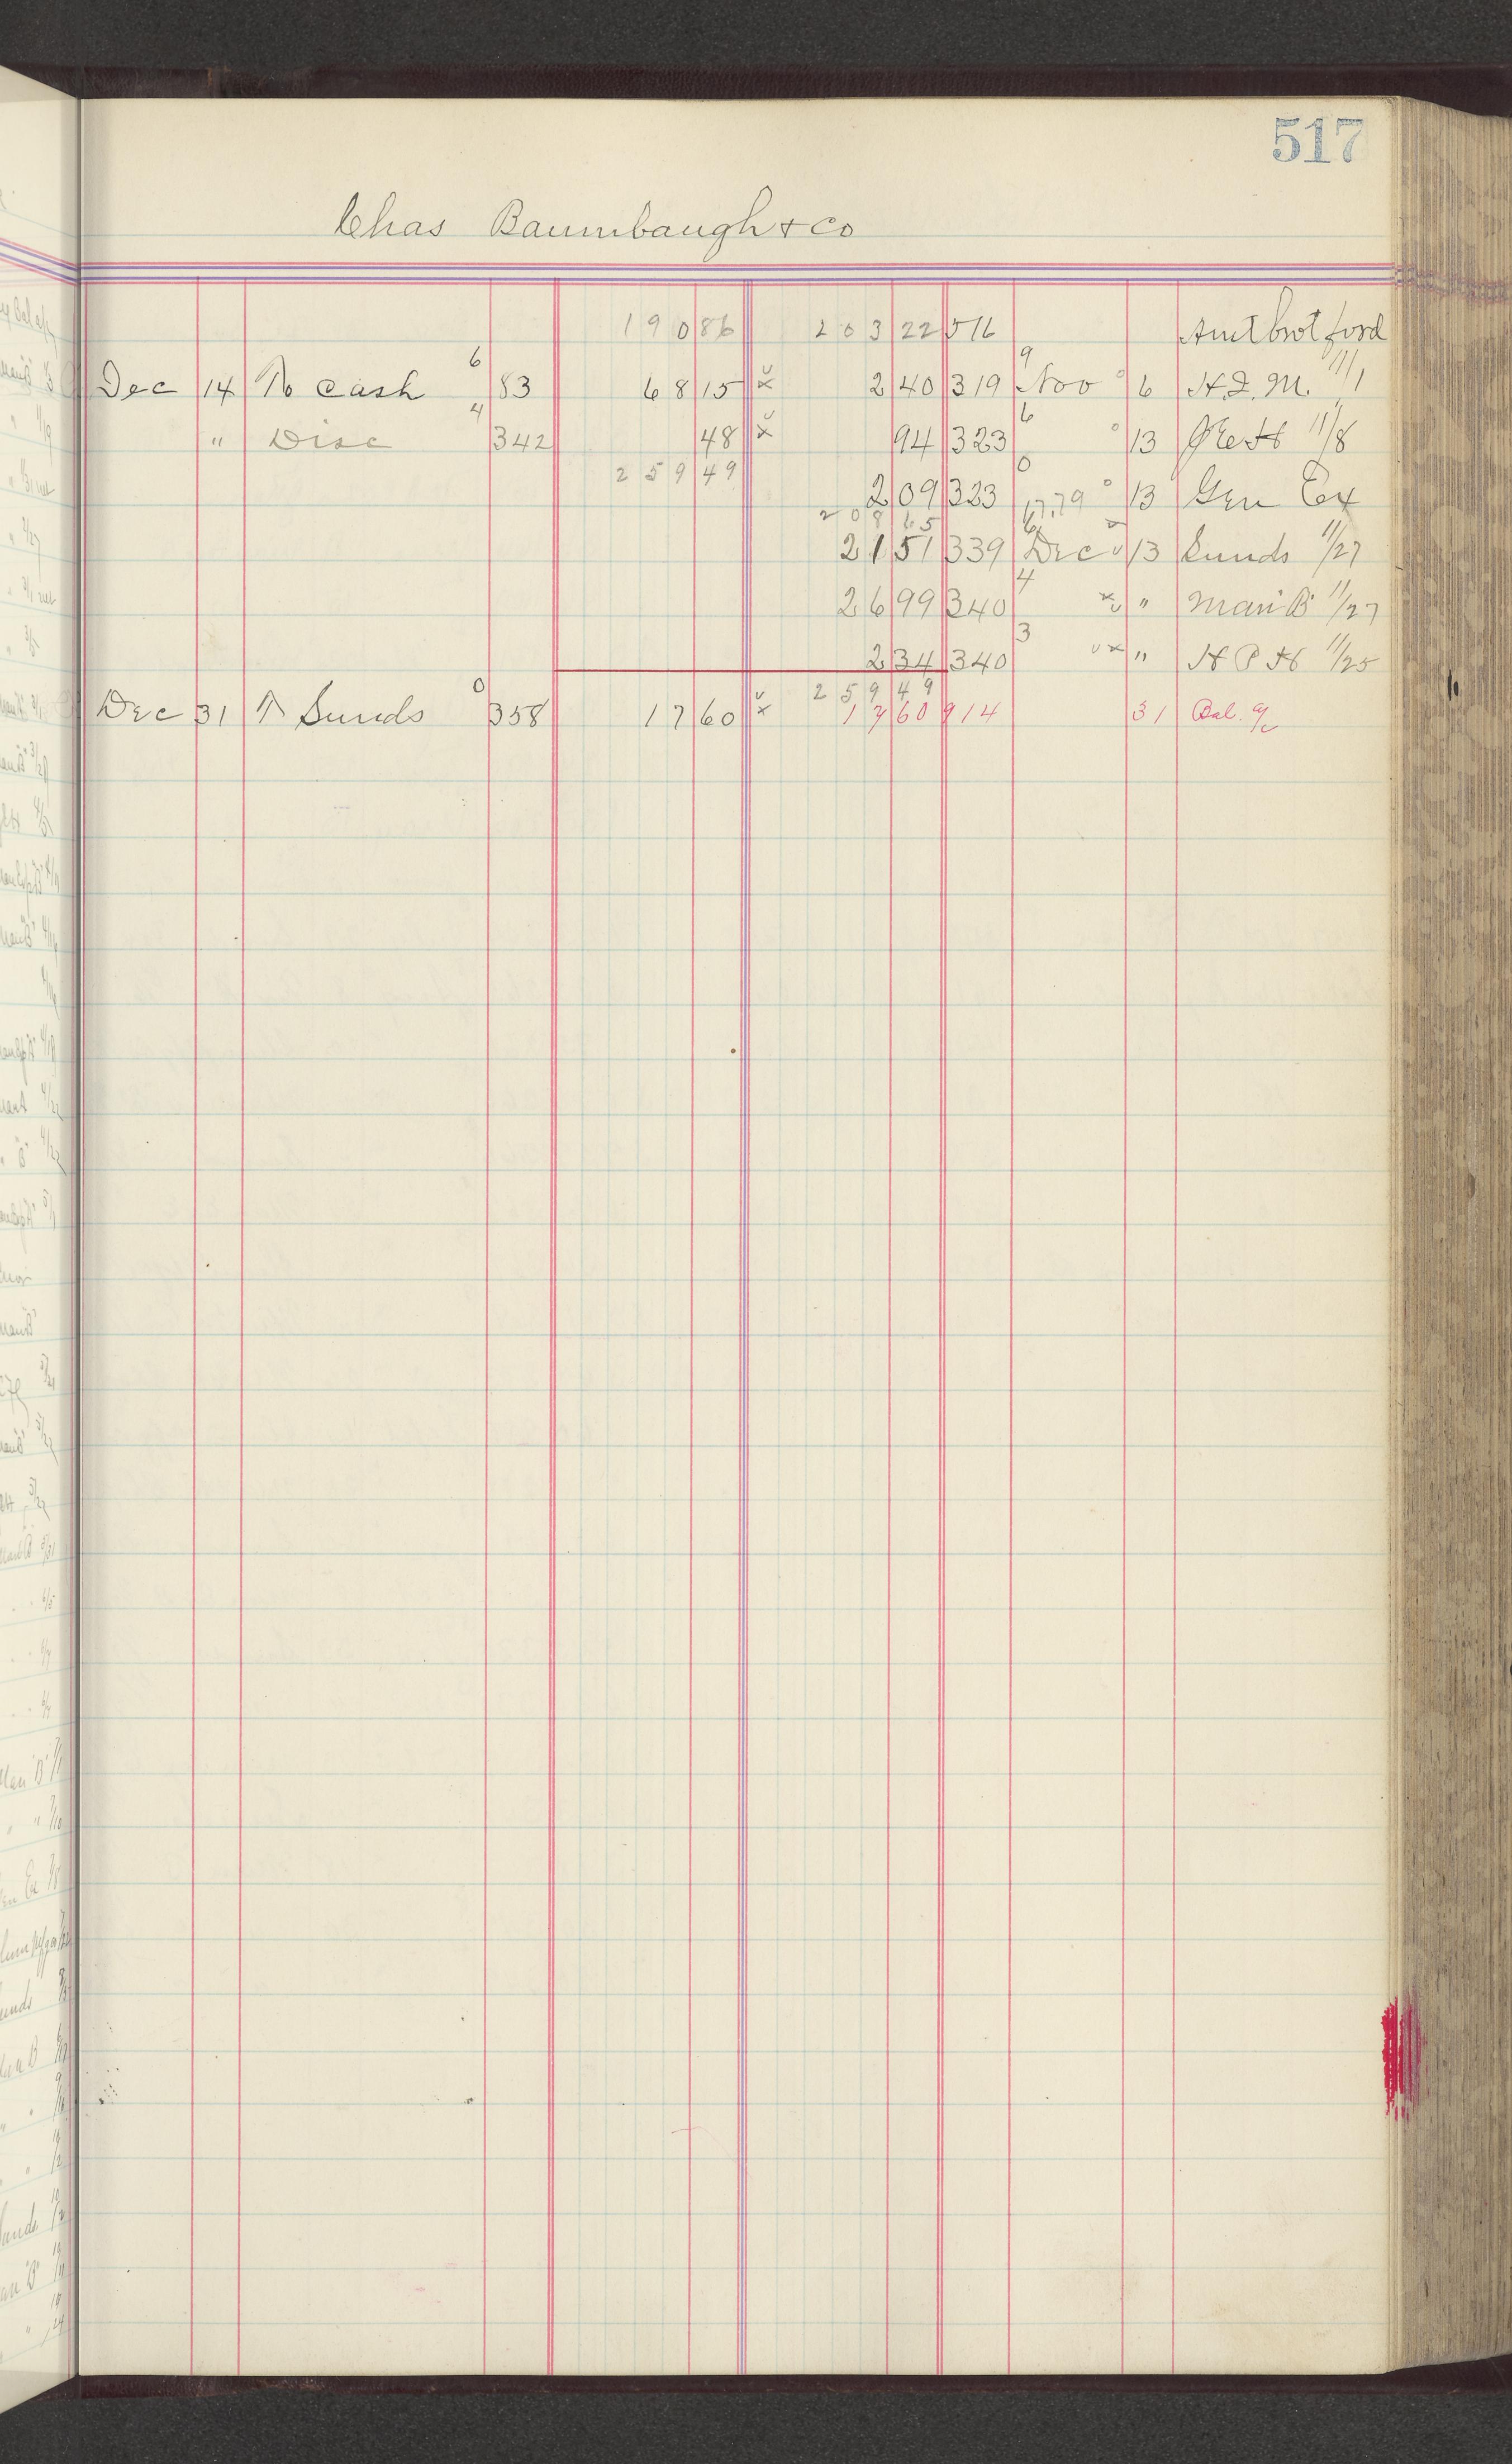 517
Chas Baumbaugh & Co
190 86 203 22 516 Amt brot ford
6 9
Dec 14 To Cash 83 68 15 x 2 40 319 Nov 6 H.I.M. 11/1
4 6
" Disc 342 48 x 94 323 13 11/8
259 49 0
2 09 323 17.79 13 Gen Ex
208 65 6
21 51 339 Dec 13 Sunds 11/27
4
26 99 340 x " Man'B' 11/27
3
2 34 340 x " H P H 11/25
0 259 49
Dec 31 To Sunds 358 17 60 x 17 60 914 31 Bal. a/c